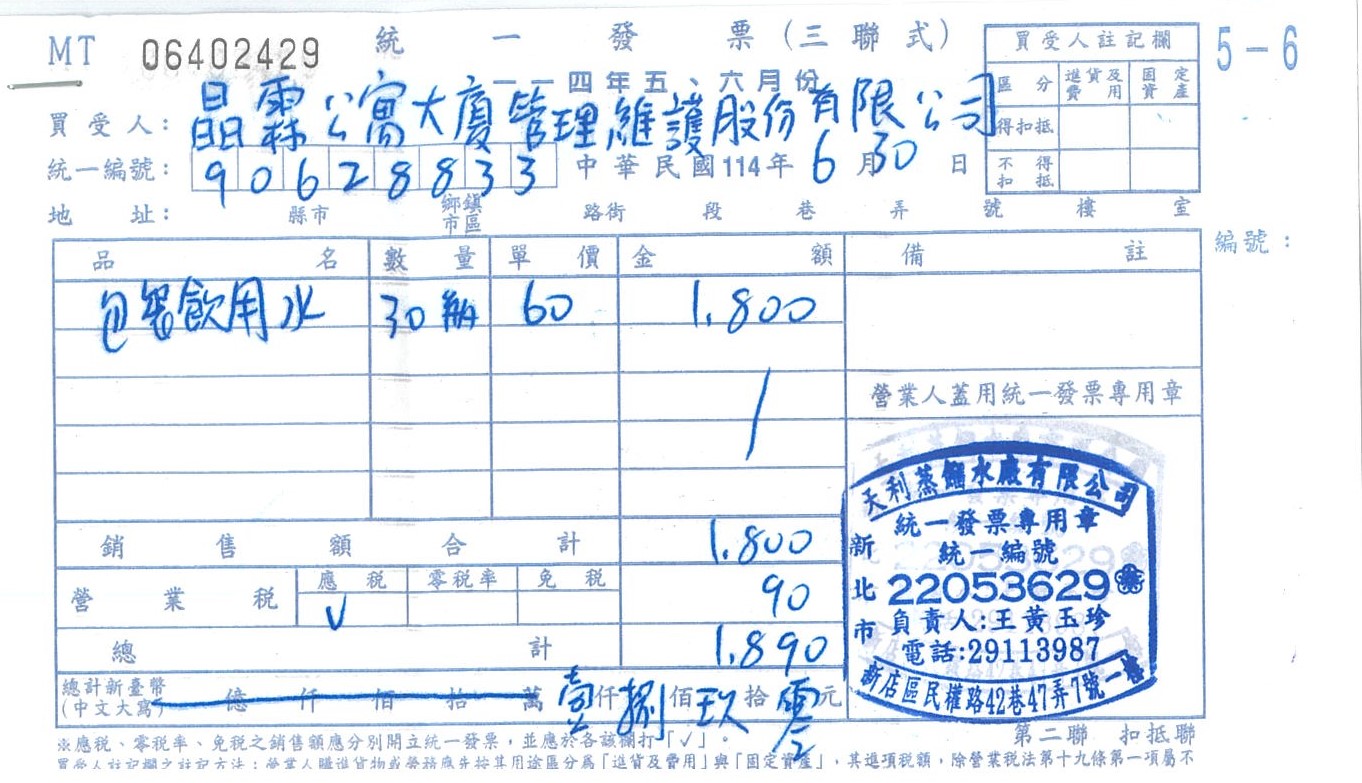 MT 06402429 統一發票(三聯式)
一一四年五、六月份
5-6
買受人註記欄
區分 進貨及費用 固定資產
得扣抵
不得扣抵
買受人: 晶霖公寓大廈管理維護股份有限公司
統一編號: 90628833 中華民國114年6月30日
地址: 縣市 鄉鎮市區 路街 段 巷 弄 號 樓 室
編號:
品名 數量 單價 金額 備註
包裝飲用水 30瓶 60 1.800
營業人蓋用統一發票專用章
銷售額合計 1.800
營業稅 應稅 零稅率 免稅 90
V
總計 1.890
總計新臺幣
(中文大寫) 億仟佰拾萬壹仟捌佰玖拾零元
天利蒸餾水廠有限公司
統一發票專用章
統一編號
22053629
負責人:王黃玉珍
電話:29113987
新北市
新店區民權路42巷47弄7號一樓
第二聯 扣抵聯
※應稅、零稅率、免稅之銷售額應分別開立統一發票,並應於各該欄打「√」。
買受人註記欄之註記方法:營業人購進貨物或勞務應先按其用途區分為「進貨及費用」與「固定資產」,其進項稅額,除營業稅法第十九條第一項屬不